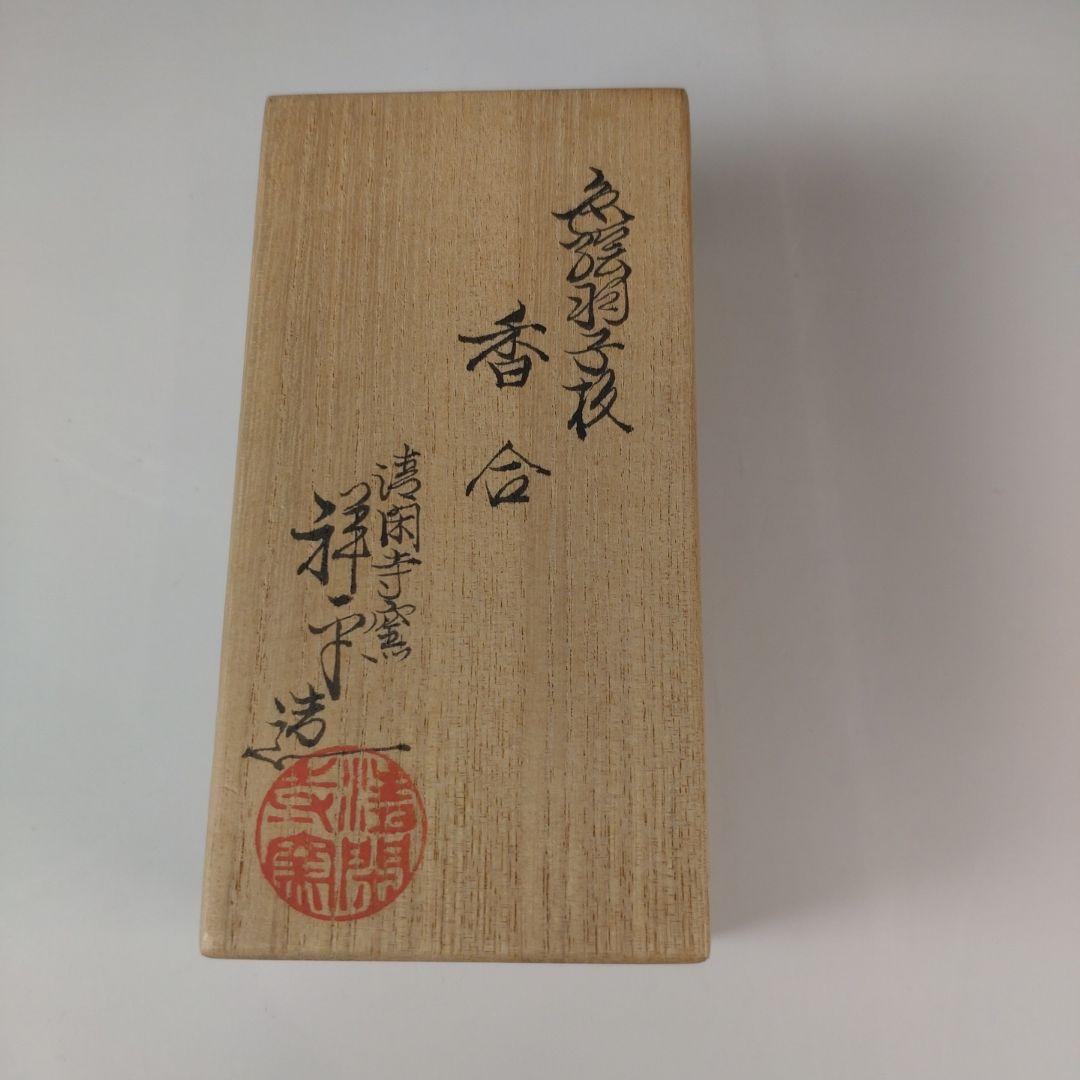 色絵羽子板
香合
清閑寺窯
祥平
造
清閑
寺窯